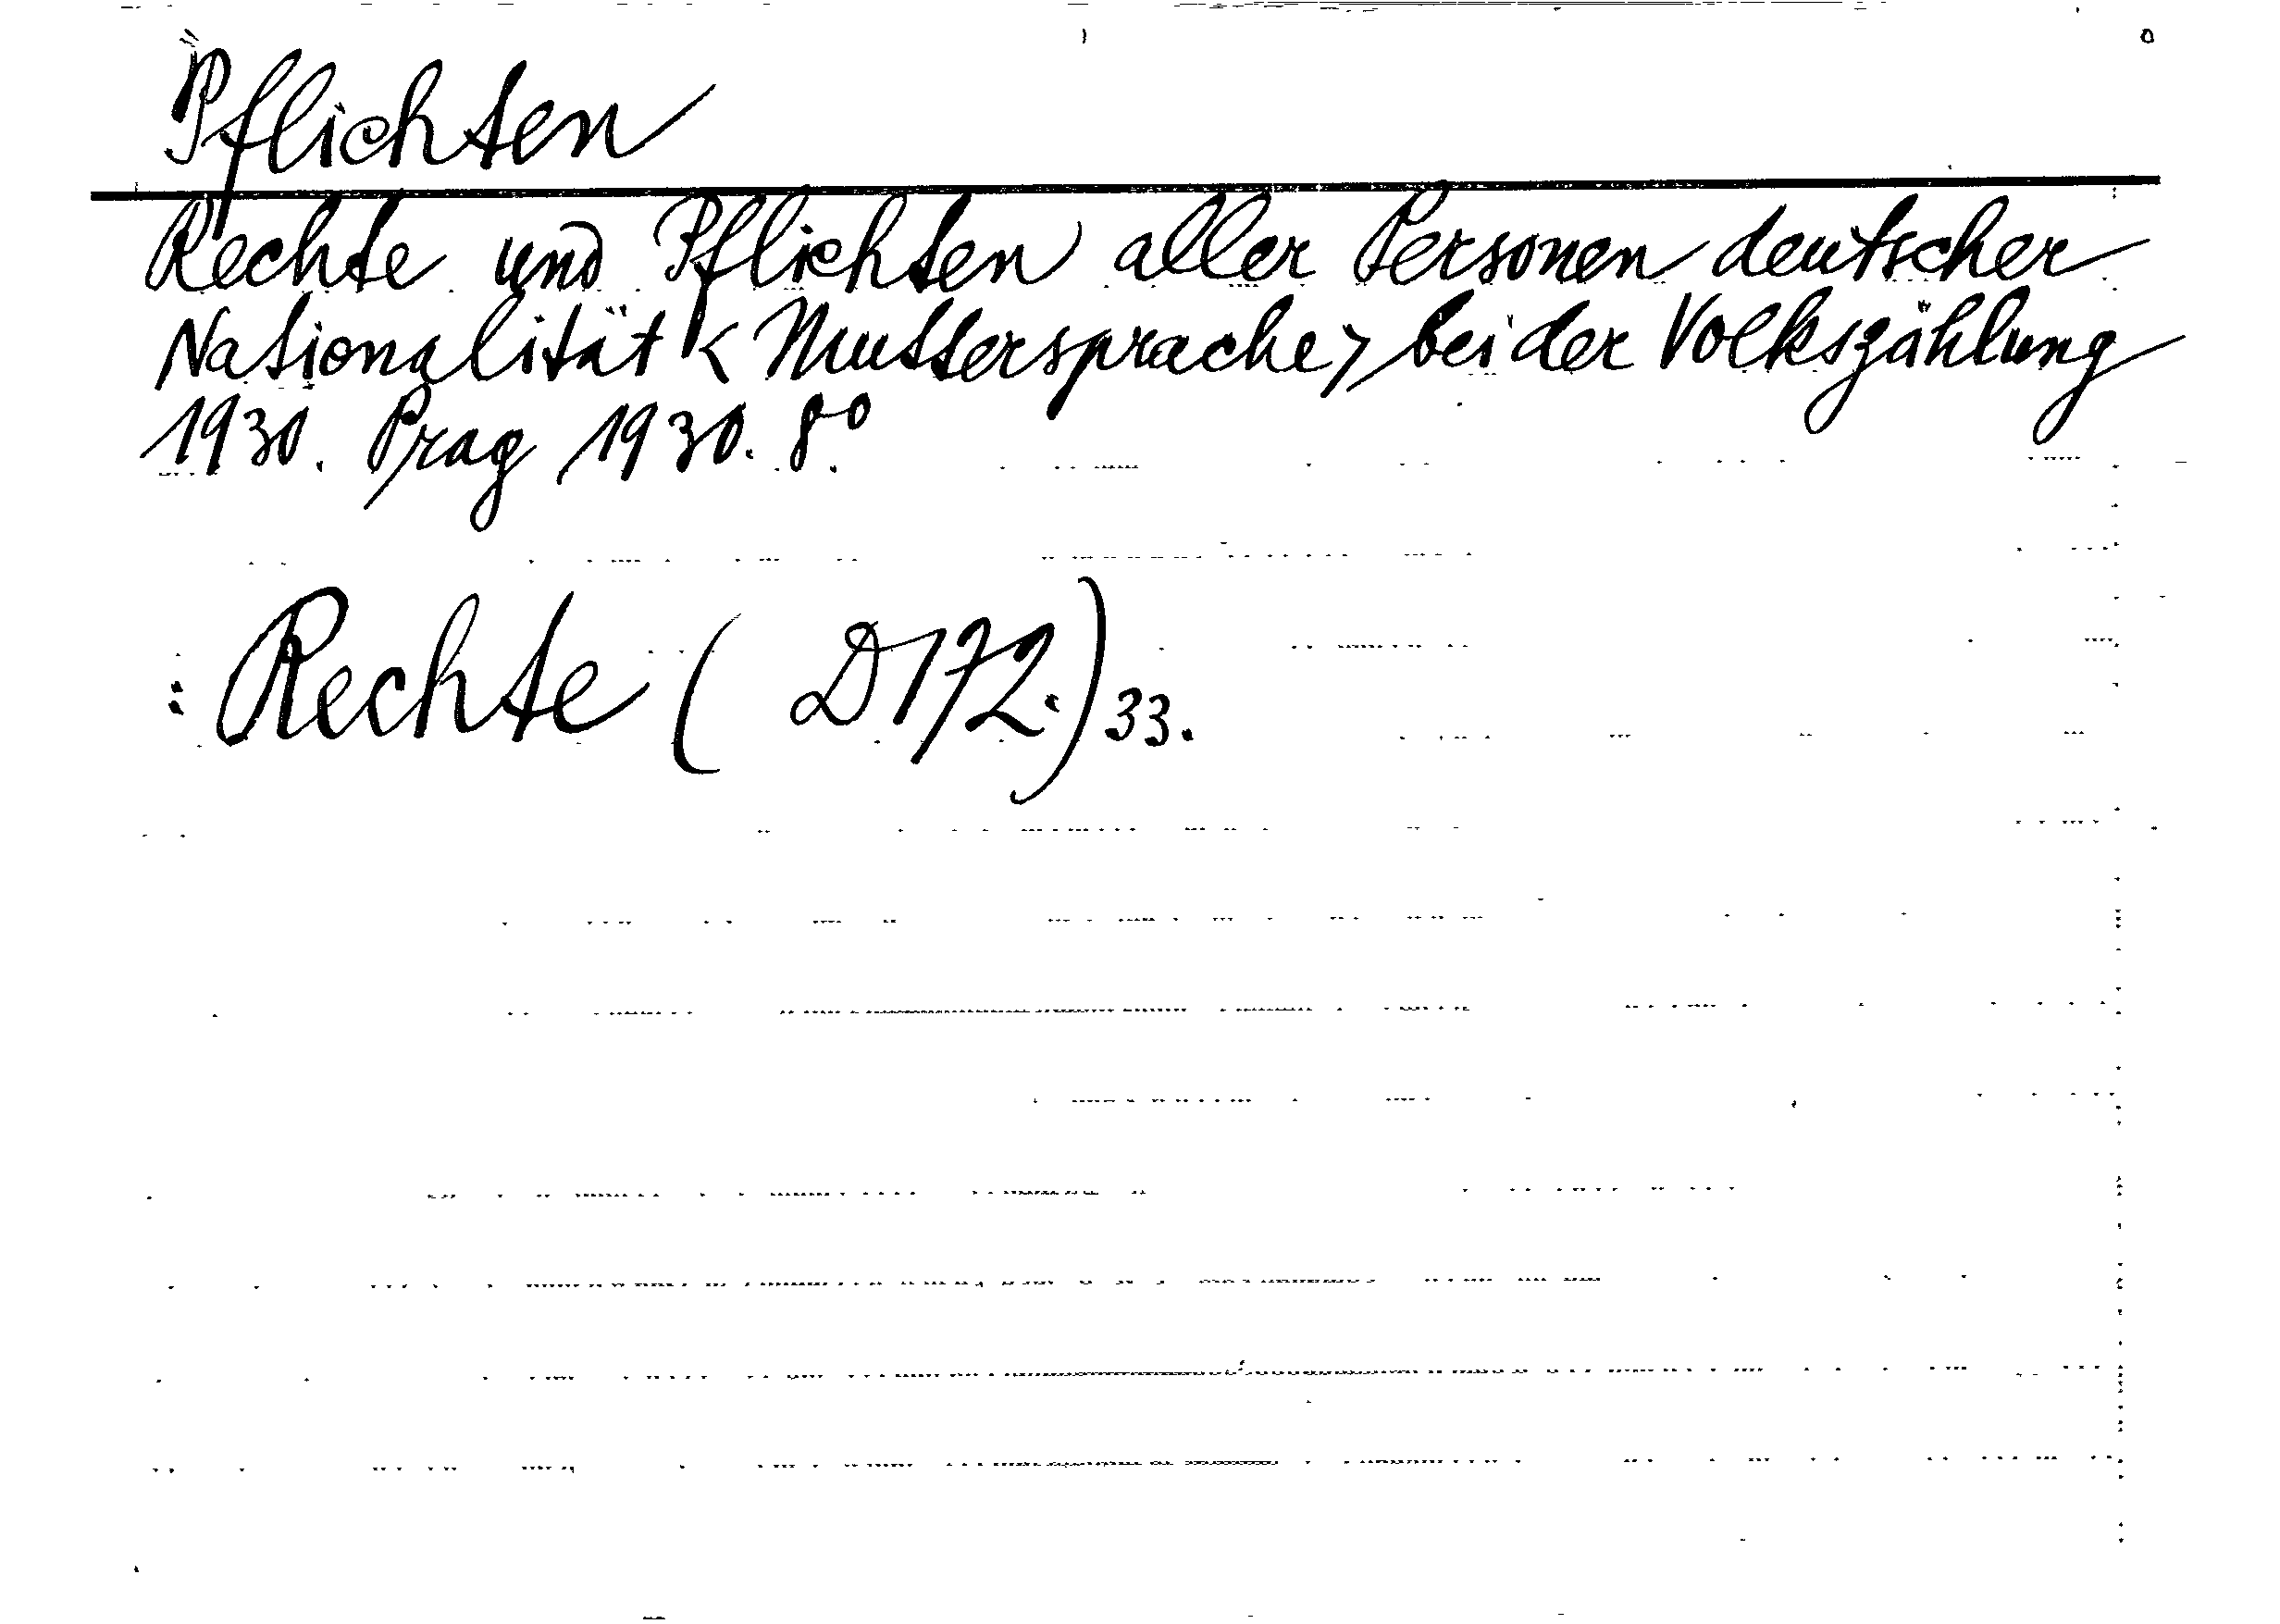 Pflichten
Rechte und Pflichten aller Personen deutscher
Nationalität < Muttersprache > bei der Volkszählung
1930. Prag 1930. 8°.
: Rechte ( D172.) 33.